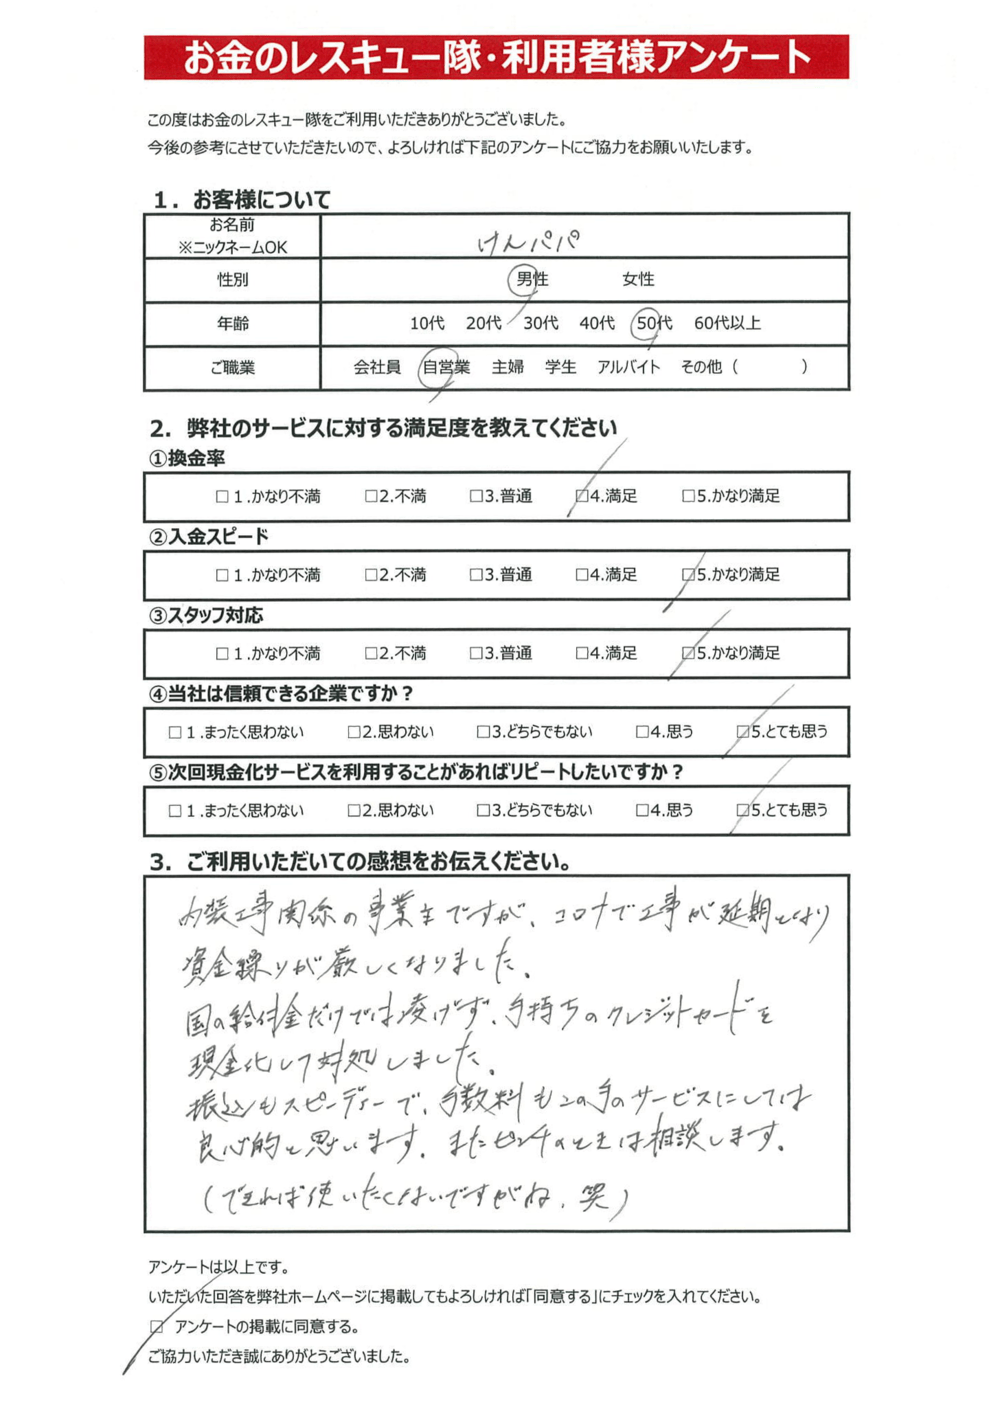 お金のレスキュー隊・利用者様アンケート
この度はお金のレスキュー隊をご利用いただきありがとうございました。
今後の参考にさせていただきたいので、よろしければ下記のアンケートにご協力をお願いいたします。
1．お客様について
お名前
※ニックネームOK
けんパパ
性別 男性 女性
年齢 10代 20代 30代 40代 50代 60代以上
ご職業 会社員 自営業 主婦 学生 アルバイト その他（ ）
2．弊社のサービスに対する満足度を教えてください
①換金率
□1.かなり不満 □2.不満 □3.普通 □4.満足 □5.かなり満足
②入金スピード
□1.かなり不満 □2.不満 □3.普通 □4.満足 □5.かなり満足
③スタッフ対応
□1.かなり不満 □2.不満 □3.普通 □4.満足 □5.かなり満足
④当社は信頼できる企業ですか？
□1.まったく思わない □2.思わない □3.どちらでもない □4.思う □5.とても思う
⑤次回現金化サービスを利用することがあればリピートしたいですか？
□1.まったく思わない □2.思わない □3.どちらでもない □4.思う □5.とても思う
3．ご利用いただいての感想をお伝えください。
内装工事関係の事業主ですが、コロナで工事が延期となり
資金繰りが厳しくなりました。
国の給付金だけでは凌げず、手持ちのクレジットカードを
現金化して対処しました。
振込もスピーディーで、手数料もこの手のサービスにしては
良心的と思います。またピンチのときは相談します。
（できれば使いたくはないですがね、笑）
アンケートは以上です。
いただいた回答を弊社ホームページに掲載してもよろしければ「同意する」にチェックを入れてください。
□ アンケートの掲載に同意する。
ご協力いただき誠にありがとうございました。